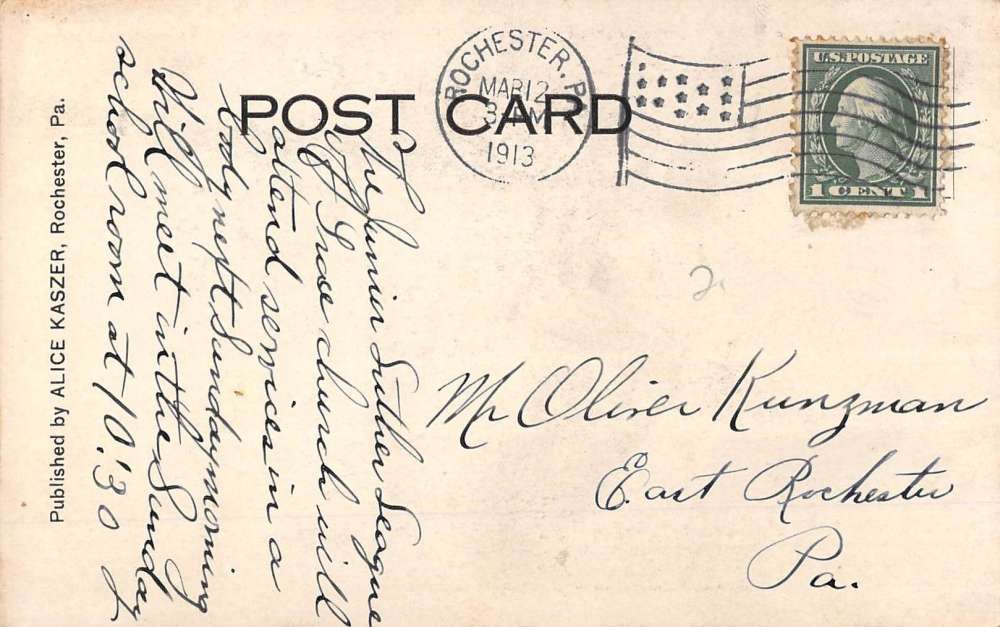 POST CARD
ROCHESTER, PA
MAR 12
3 PM
1913
U.S. POSTAGE
1 CENT 1
The Junior Luther League
of Grace church will
attend services in a
body next Sunday morning
Will meet in the Sunday
school room at 10:30
2
Mr Oliver Kunzman
East Rochester
Pa.
Published by ALICE KASZER, Rochester, Pa.